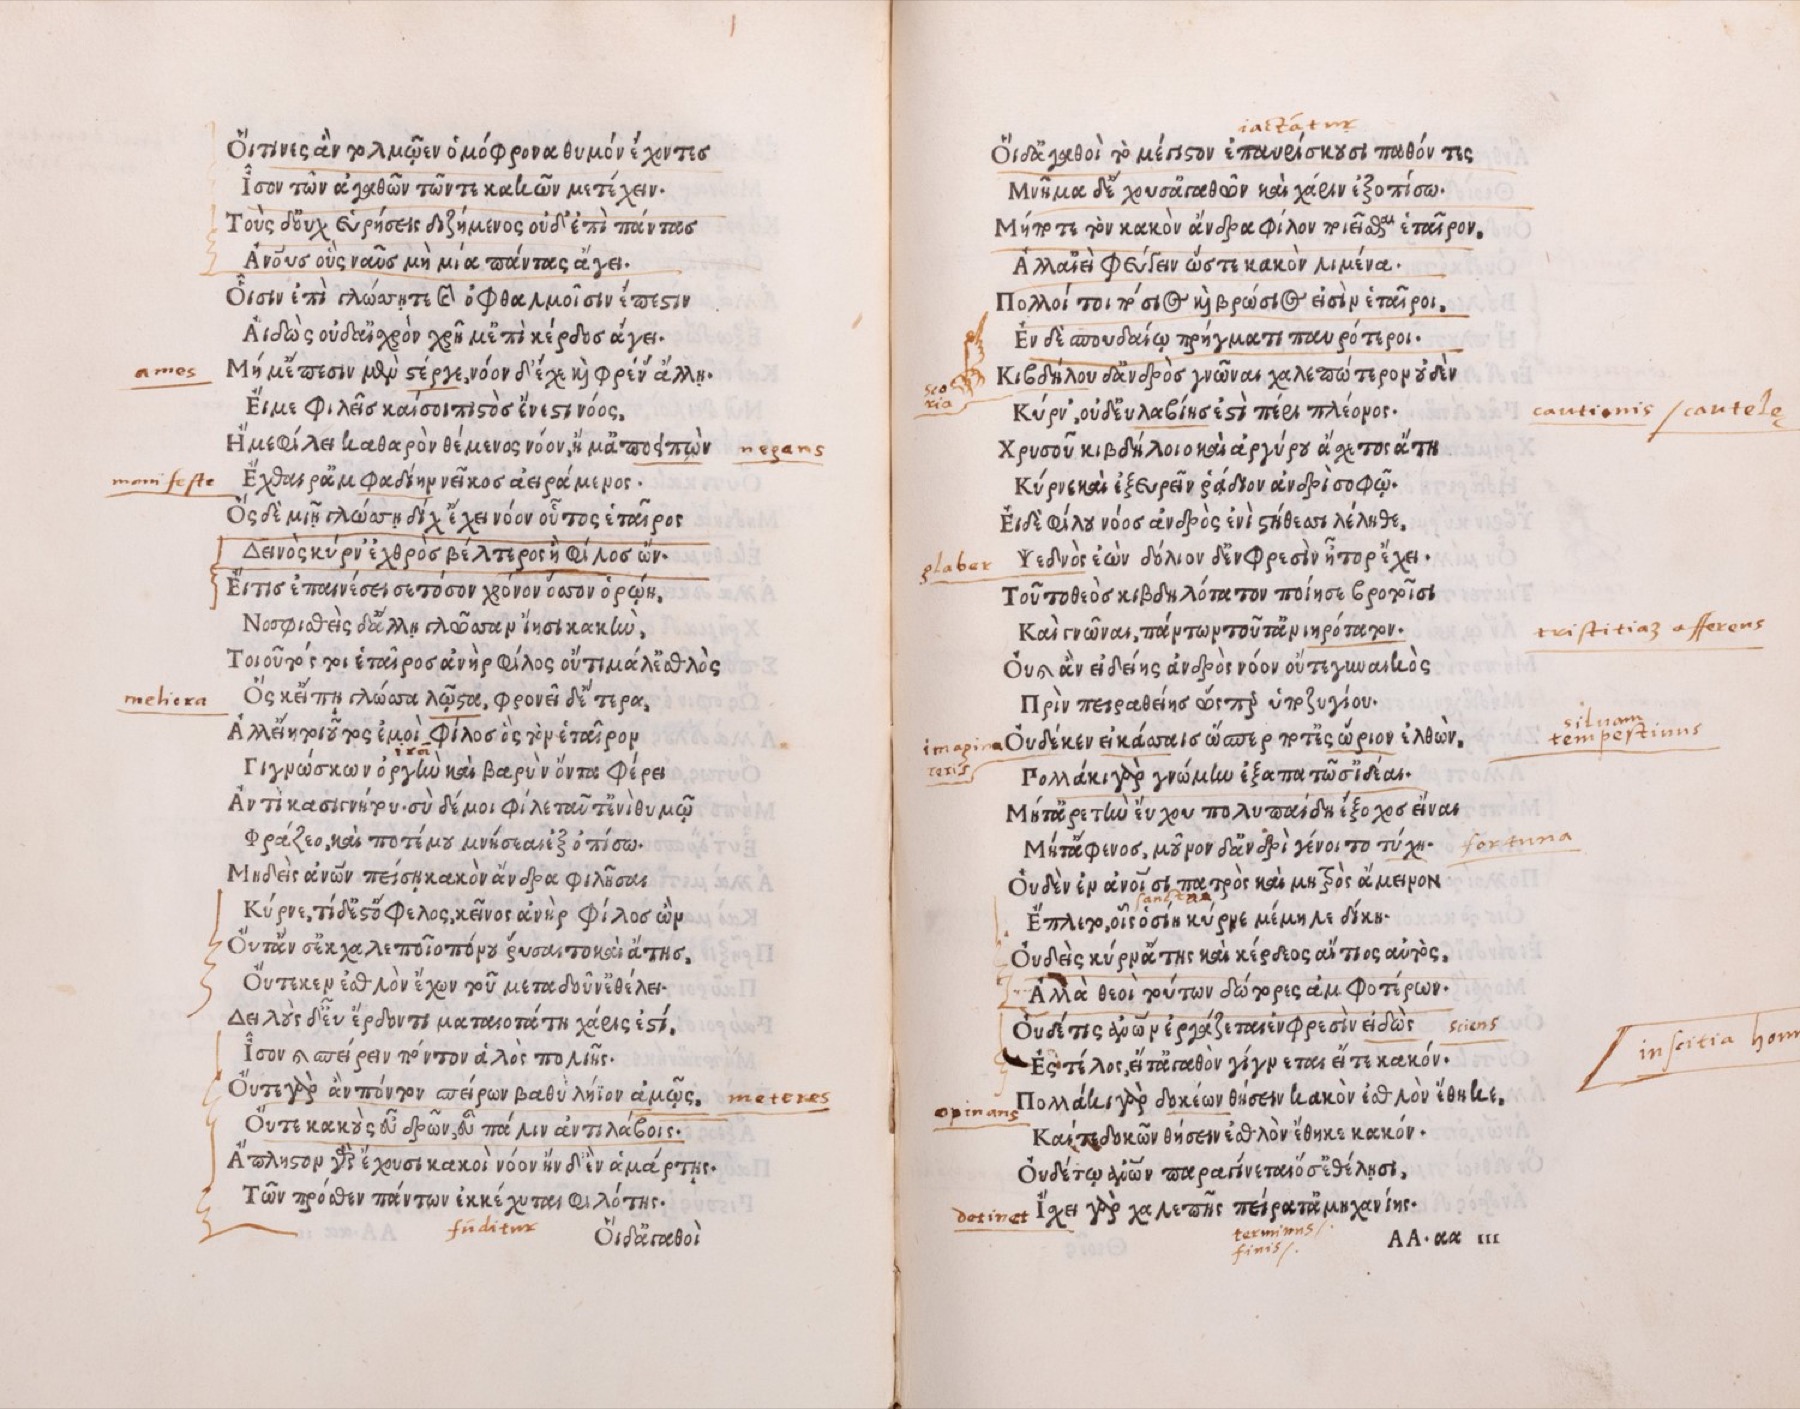 Ὅιτινες ἂν τολμῷεν ὁμόφρονα θυμόν ἔχοντες
Ἶσον τῶν ἀγαθῶν τῶντε κακῶν μετέχειν.
Τοὺς δ'ὀυχ ἑυρήσεις διζήμενος οὐδ'ἐπὶ πάντας
Ἀνθρώπους οὓς ναῦς μὴ μία πάντας ἄγει.
Ὅισιν ἐπὶ γλώσσῃτε καὶ ὀφθαλμοῖσιν ἔπεστιν
Ἀιδὼς οὐδ'αἰσχρὸν χρῆμ'ἔπι κέρδος ἄγει.
ames
Μή μ'ἔπεσιν μὲν στέργε, νόον δ'ἔχε κỳ φρέν'ἄλλῃ.
Ἔιμε φιλεῖς καίσοι πιστὸς ἔνεστι νόος,
Ἤμε φίλει καθαρὸν θέμενος νόον, ἤ μ'ἀποειπὼν
negans
manifeste
Ἔχθαιρ'ἀμφαδίην νεῖκος ἀειράμενος.
Ὅς δὲ μιῇ γλώσσῃ δίχ'ἔχει νόον οὗτος ἑταῖρος
Δεινὸς κύρν'ἐχθρὸς βέλτερος ἢ φίλος ὤν.
Ἔιτις ἐπαινέσει σε τόσον χρόνον ὅσσον ὁρῴη,
Νοσφισθεὶς δ'ἄλλῃ γλῶσσαν ἵησι κακὴν,
Τοιοῦτός τοι ἑταῖρος ἀνὴρ φίλος οὔτι μάλ'ἐσθλὸς
meliora
Ὅς κ'εἴπῃ γλώσσα λῷστα, φρονεῖ δ'ἕτερα,
Ἀλλ'εἴη τοιοῦτος ἐμοὶ φίλος ὃς τὸν ἑταῖρον
irā
Γιγνώσκων ὀργὴν καὶ βαρὺν ὄντα φέρει
Ἀντὶ κασιγνήτου. σὺ δέ μοι φίλε ταῦτ'ἐνὶ θυμῷ
Φράζεο, καὶ ποτέ μου μνήσεαι ἐξοπίσω.
Μηδείς σ'ἀνθρώπων πείσῃ κακὸν ἄνδρα φιλῆσαι
Κύρνε, τί δ'ἔστ'ὄφελος, κεῖνος ἀνὴρ φίλος ὢν
Ὄυτ'ἄν σ'ἐκ χαλεποῖο πόνου ῥύσαιτο καὶ ἄτης,
Ὄυτε κεν ἐσθλὸν ἔχων τοῦ μεταδοῦν ἐθέλει.
Δειλοὺς δ'εὖ ἕρδοντι ματαιοτάτη χάρις ἐστί,
Ἶσον καὶ σπείρειν πόντον ἁλὸς πολιῆς.
Ὄυτε γὰρ ἂν πόντον σπείρων βαθὺ λήϊον ἀμῷς,
meteres
Ὄυτε κακοὺς εὖ δρῶν, εὖ πάλιν ἀντιλάβοις.
Ἄπληστον γὰρ ἔχουσι κακοὶ νόον ἢν δ'ἓν ἁμάρτῃς.
Τῶν πρόσθεν πάντων ἐκκέχυται φιλότης.
fūditur
Ὁιδ'ἀγαθοὶ
iactātur
Ὁιδ'ἀγαθοὶ τὸ μέγιστον ἐπαυρίσκουσι παθόντες
Μνῆμα δ'ἔχουσ'ἀγαθῶν καὶ χάριν ἐξοπίσω.
Μήποτε τὸν κακὸν ἄνδρα φίλον ποιεῖσθαι ἑταῖρον,
Ἀλλ'αἰεὶ φεύγειν ὥστε κακὸν λιμένα.
Πολλοί τοι πόσιος κỳ βρώσιος εἰσὶν ἑταῖροι,
Ἐν δὲ σπουδαίῳ πρήγματι παυρότεροι.
scoria
Κιβδήλου δ'ἀνδρὸς γνῶναι χαλεπώτερον οὐδὲν
Κύρν', οὐδ'εὐλαβίης ἐστὶ πέρι πλέονος.
cautionis / cautele
Χρυσοῦ κιβδήλοιο καὶ ἀργύρου ἄσχετος ἄτη
Κύρνε καὶ ἐξευρεῖν ῥάδιον ἀνδρὶ σοφῷ.
Ἐι δὲ φίλου νόος ἀνδρὸς ἐνὶ στήθεσσι λέληθε,
glaber
Ψεδνὸς ἐὼν δόλιον δ'ἐν φρεσὶν ἦτορ ἔχει.
Τοῦτο θεὸς κιβδηλότατον ποίησε βροτοῖσι
Καὶ γνῶναι, πάντων τοῦτ'ἀνιηρότατον.
tristitiaȝ afferens
Ὀυ γὰρ ἂν εἰδείης ἀνδρὸς νόον οὔτε γυναικὸς
Πρὶν πειραθείης ὥσπερ ὑποζυγίου.
imaginareris
Ὀυδέ κεν εἰκάσσαις ὥσπερ ποτ'ἐς ὥριον ἐλθὼν,
silvam
tempestivus
Πολλάκι γὰρ γνώμην ἐξαπατῶσ'ἰδέαι.
Μήτ'ἀρετὴν ἔυχου πολυπαίδη ἔξοχος εἶναι
Μήτ'ἄφενος, μοῦνον δ'ἀνδρὶ γένοιτο τύχη.
fortuna
Ὀυδὲν ἐν ἀνθρώποισι πατρὸς καὶ μητρὸς ἄμεινον
Ἔπλετο, οἷς ὁσίη κύρνε μέμηλε δίκη.
Ὀυδεὶς κύρν'ἄτης καὶ κέρδεος αἴτιος αὐτὸς,
Ἀλλὰ θεοὶ τούτων δώτορες ἀμφοτέρων.
Ὀυδέ τις ἀνθρώπων ἐργάζεται ἐν φρεσὶν εἰδὼς
sciens
inscitia hom
Ἐς τέλος, εἴτ'ἀγαθὸν γίγνεται εἴτε κακόν.
Πολλάκι γὰρ δοκέων θήσειν κακὸν ἐσθλὸν ἔθηκε,
opinans
Καί τε δοκῶν θήσειν ἐσθλὸν ἔθηκε κακόν.
Ὀυδέ τῳ ἀνθρώπων παραγίνεται ὅσ'ἐθέλῃσι,
detinet
Ἴσχει γὰρ χαλεπῆς πείρατ'ἀμηχανίης.
terminus/.
finis/.
ΑΑ·αα III